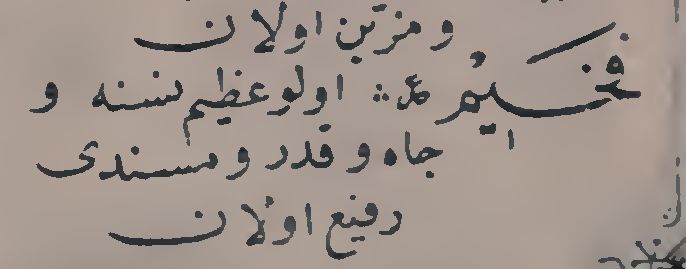 و مزین اولان
فخیم ص: اولو عظیم نسنه و
جاه و قدر و مسندی
رفیع اولان